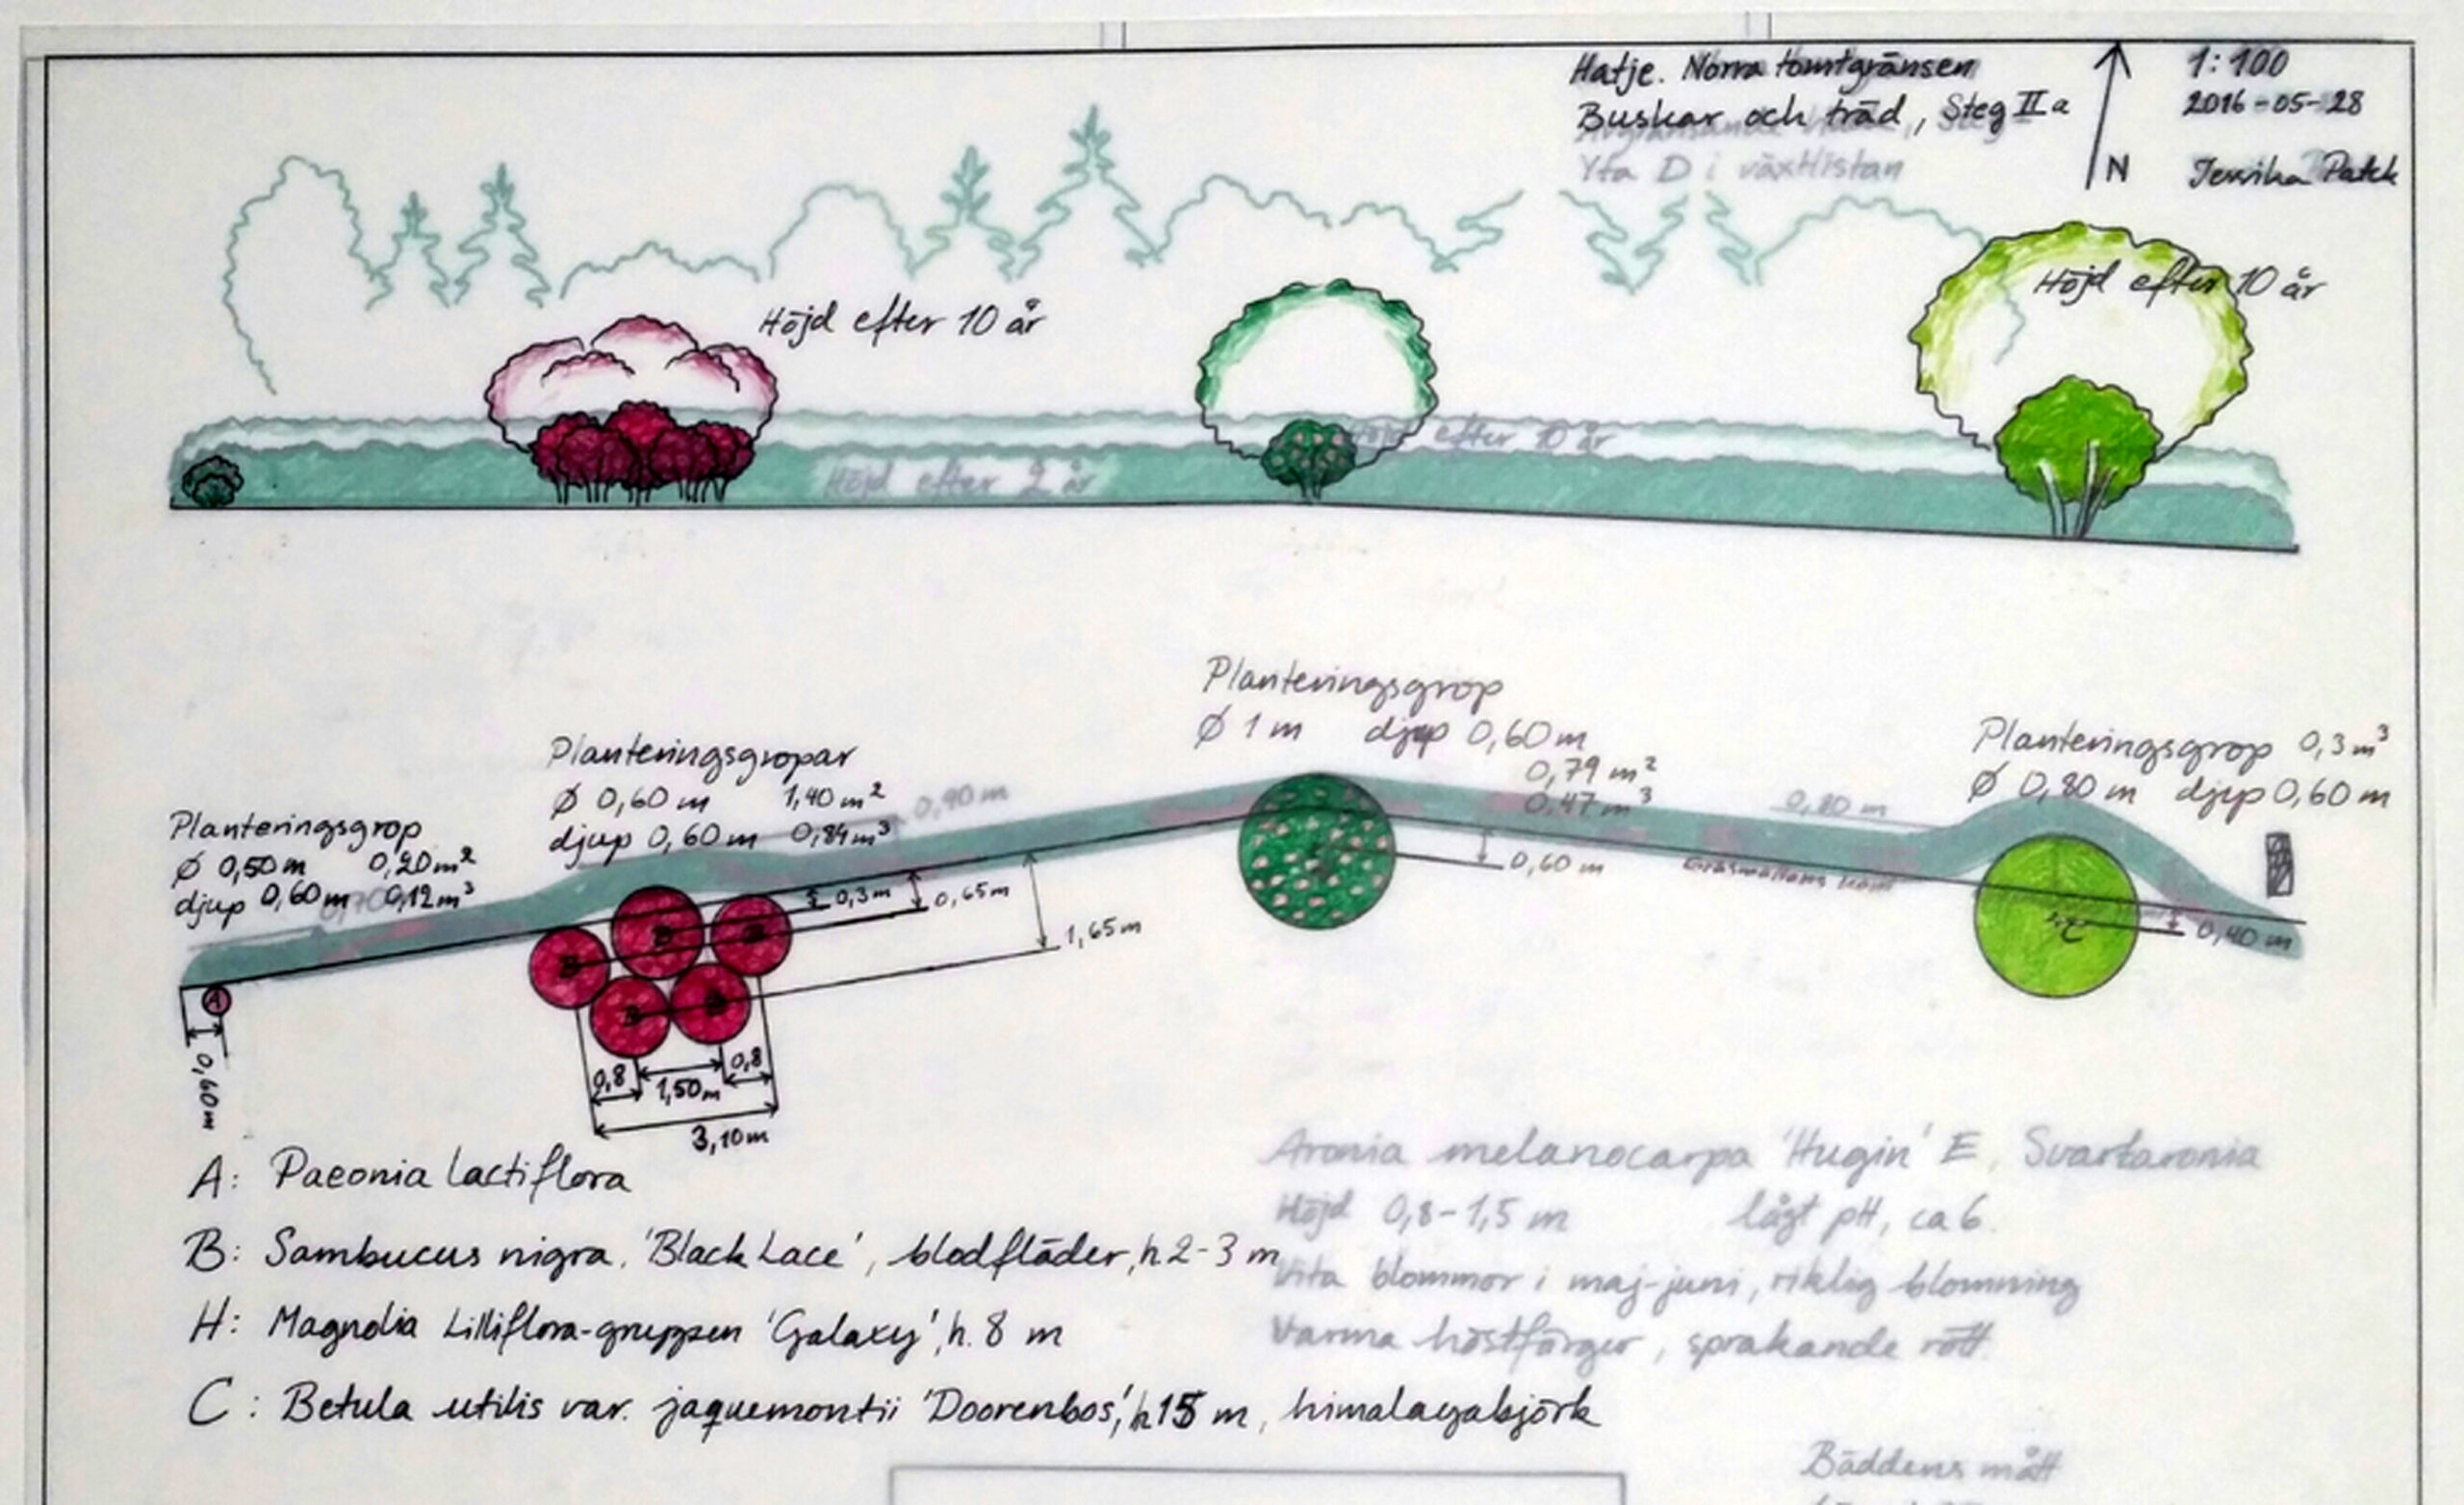 Hatje. Norra tomtgränsen
Buskar och träd, Steg IIa
Yta D i växtlistan
N
1:100
2016-05-28
Höjd efter 10 år
Höjd efter 10 år
Höjd efter 10 år
Höjd efter 2 år
Planteringsgrop
Ø 1 m djup 0,60 m
0,79 m²
0,47 m³
Planteringsgrop 0,3 m³
Ø 0,80 m djup 0,60 m
Planteringsgropar
Ø 0,60 m 1,40 m²
djup 0,60 m 0,84 m³
0,90 m
0,80 m
Planteringsgrop
Ø 0,50 m 0,20 m²
djup 0,60 m 0,12 m³
0,70
0,3 m
0,65 m
1,65 m
0,60 m
Gräsmattans kant
0,40 m
A
B
B
B
B
B
0,60 m
0,8
1,50 m
0,8
3,10 m
A: Paeonia lactiflora
B: Sambucus nigra. 'Black Lace', blodfläder, h 2-3 m
H: Magnolia Lilliflora-gruppen 'Galaxy', h. 8 m
C: Betula utilis var. jaquemontii 'Doorenbos', h 15 m, himalayabjörk
Aronia melanocarpa 'Hugin' E, Svartaronia
Höjd 0,8-1,5 m lågt pH, ca 6.
Vita blommor i maj-juni, riklig blomning
Varma höstfärger, sprakande rött.
Bäddens mått